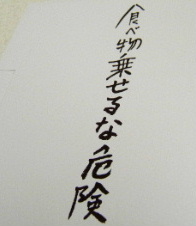 食べ物乗せるな危険